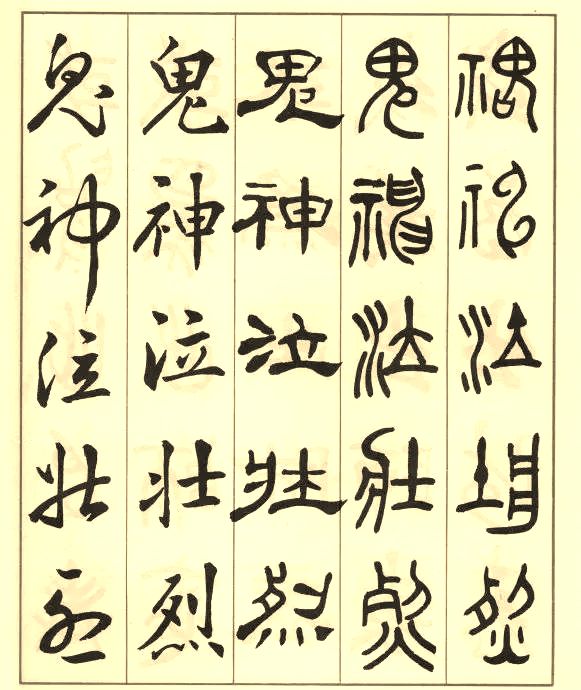 鬼神泣壯烈
鬼神泣壯烈
鬼神泣壮烈
鬼神泣壮烈
鬼神泣壮烈